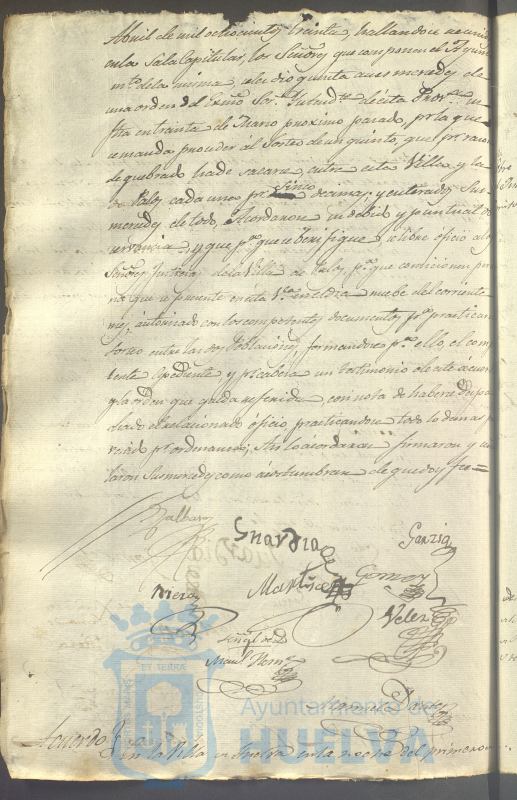 Abril de mil ochocientos treinta hallandose reunid
en la Sala Capitular los Señores que componen el Ayun
mto. de la misma se dio quenta a sus mercedes de
una orden del Exmo Sor. Intendte. de esta Prova. su
fha en treinta de Marzo proximo pasado, pr. la que
se manda proceder al Sorteo de un quinto, que pr. razon
de quebrado ha de sacarse entre esta Villa y la
de Palos cada una pr. sinco decimas; y enterados sus
mercedes de todo, Acordaron su devida y puntual ob
servancia; y que pa. que se berifique se libre oficio a los
Señores Justicia de la Villa de Palos, pa. que comicionen per
na. que se presente en esta Va. en el dia nuebe del corriente
mes, autorizado con los competentes documentos pa. practicar
sorteo entre las dos Poblaciones, formandose pa. ello, el comp
tente Expediente y pr. cabeza un testimonio de este acuer
y la orden que queda referida, con nota de haberse despa
chado el relacionado oficio practicandose todo lo demas p
venido pr. ordenanza; Asi lo acordaron firmaron y se
ñalaron Sus mercedes como acostumbran de que doy fee=
Guardia
Garzia
Martinez
Gomez
Mera
Velez
Señal de
Manl. Rom
Acuerdo
En la Villa de Huelva en la noche del primero
ET TERRA
Ayuntamiento de
HUELVA